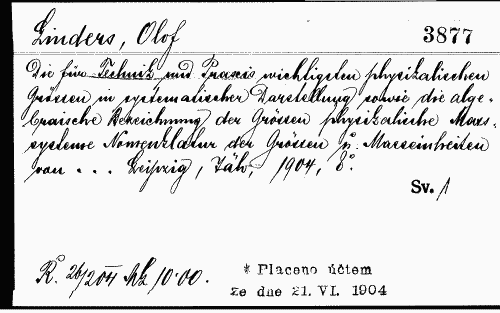 Linders, Olof 3877
Die für Technik und Praxis wichtigsten physikalischen
Grössen in systematischer Darstellung sowie die alge-
braische Bezeichnung der Grössen physikalische Mass-
systeme Nomenklatur der Grössen u. Masseinheiten
von ... Leipzig, Jäh, 1904, 8°.
Sv. 1
R. 26/2 04 Mk 10·00.
* Placeno účtem
ze dne 21. VI. 1904